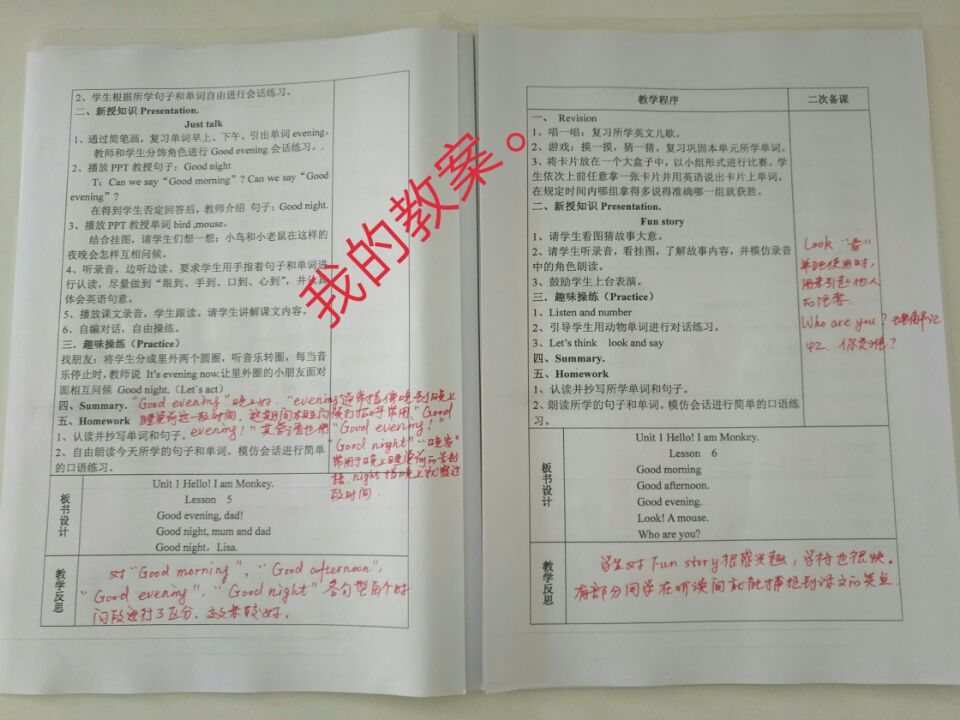 2、学生根据所学句子和单词自由进行会话练习。
二、新授知识 Presentation.
Just talk
1、通过简笔画，复习单词早上、下午。引出单词 evening，
教师和学生分饰角色进行 Good evening 会话练习。.
2、播放 PPT 教授句子：Good night
T：Can we say “Good morning”? Can we say “Good
evening”?
在得到学生否定回答后，教师介绍 句子：Good night.
3、播放 PPT 教授单词 bird ,mouse。
结合挂图，请学生们想一想：小鸟和小老鼠在这样的
夜晚会怎样互相问候。
4、听录音，边听边读。要求学生用手指着句子和单词进
行认读，尽量做到“眼到、手到、口到、心到”，并
体会英语句意。
5、播放课文录音，学生跟读。请学生讲解课文内容。
6、自编对话，自由操练。
三、趣味操练（Practice）
找朋友：将学生分成里外两个圆圈，听音乐转圈，每当音
乐停止时,教师说 It's evening now.让里外圈的小朋友面对
面相互问候 Good night.（Let's act）
四、Summary. “Good evening”晚上好. “evening”通常指傍晚到晚上
睡觉前这一段时间，
五、Homework
evening！”
“Good evening！”
1、认读并抄写单词和句子。
“Good night”
2、自由朗读今天所学的句子和单词。模仿会话进行简单
的口语练习。
night 指晚上
时间.
板书设计
Unit 1 Hello! I am Monkey.
Lesson 5
Good evening, dad!
Good night, mum and dad
Good night，Lisa.
教学反思
对“Good morning”，“Good afternoon”，
“Good evening”，“Good night”各句型
问候进行了区分，效果较好。
我的教案。
教学程序
二次备课
一、 Revision
1、唱一唱：复习所学英文儿歌。
2、游戏：摸一摸，猜一猜。复习巩固本单元所学单词。
3、将卡片放在一个大盒子中，以小组形式进行比赛。学
生依次上前任意拿一张卡片并用英语说出卡片上单词，
在规定时间内哪组拿得多说得准确哪一组就获胜。
二、新授知识 Presentation.
Fun story
1、请学生看图猜故事大意。
2、请学生听录音，看挂图，了解故事内容，并模仿录音
中的角色朗读。
3、鼓励学生上台表演。
三、趣味操练（Practice）
1、Listen and number
2、引导学生用动物单词进行对话练习。
3、Let's think look and say
四、Summary.
五、Homework
1、认读并抄写所学单词和句子。
2、朗读所学的句子和单词。模仿会话进行简单的口语练
习。
Look “看”
单独使用时，
用来引起他人
的注意.
Who are you?
你是谁？
板书设计
Unit 1 Hello! I am Monkey.
Lesson 6
Good morning
Good afternoon.
Good evening.
Look! A mouse.
Who are you?
教学反思
学生对 Fun story 很感兴趣，学得也很快。
有部分同学在听读间就能捕捉到课文的笑点.